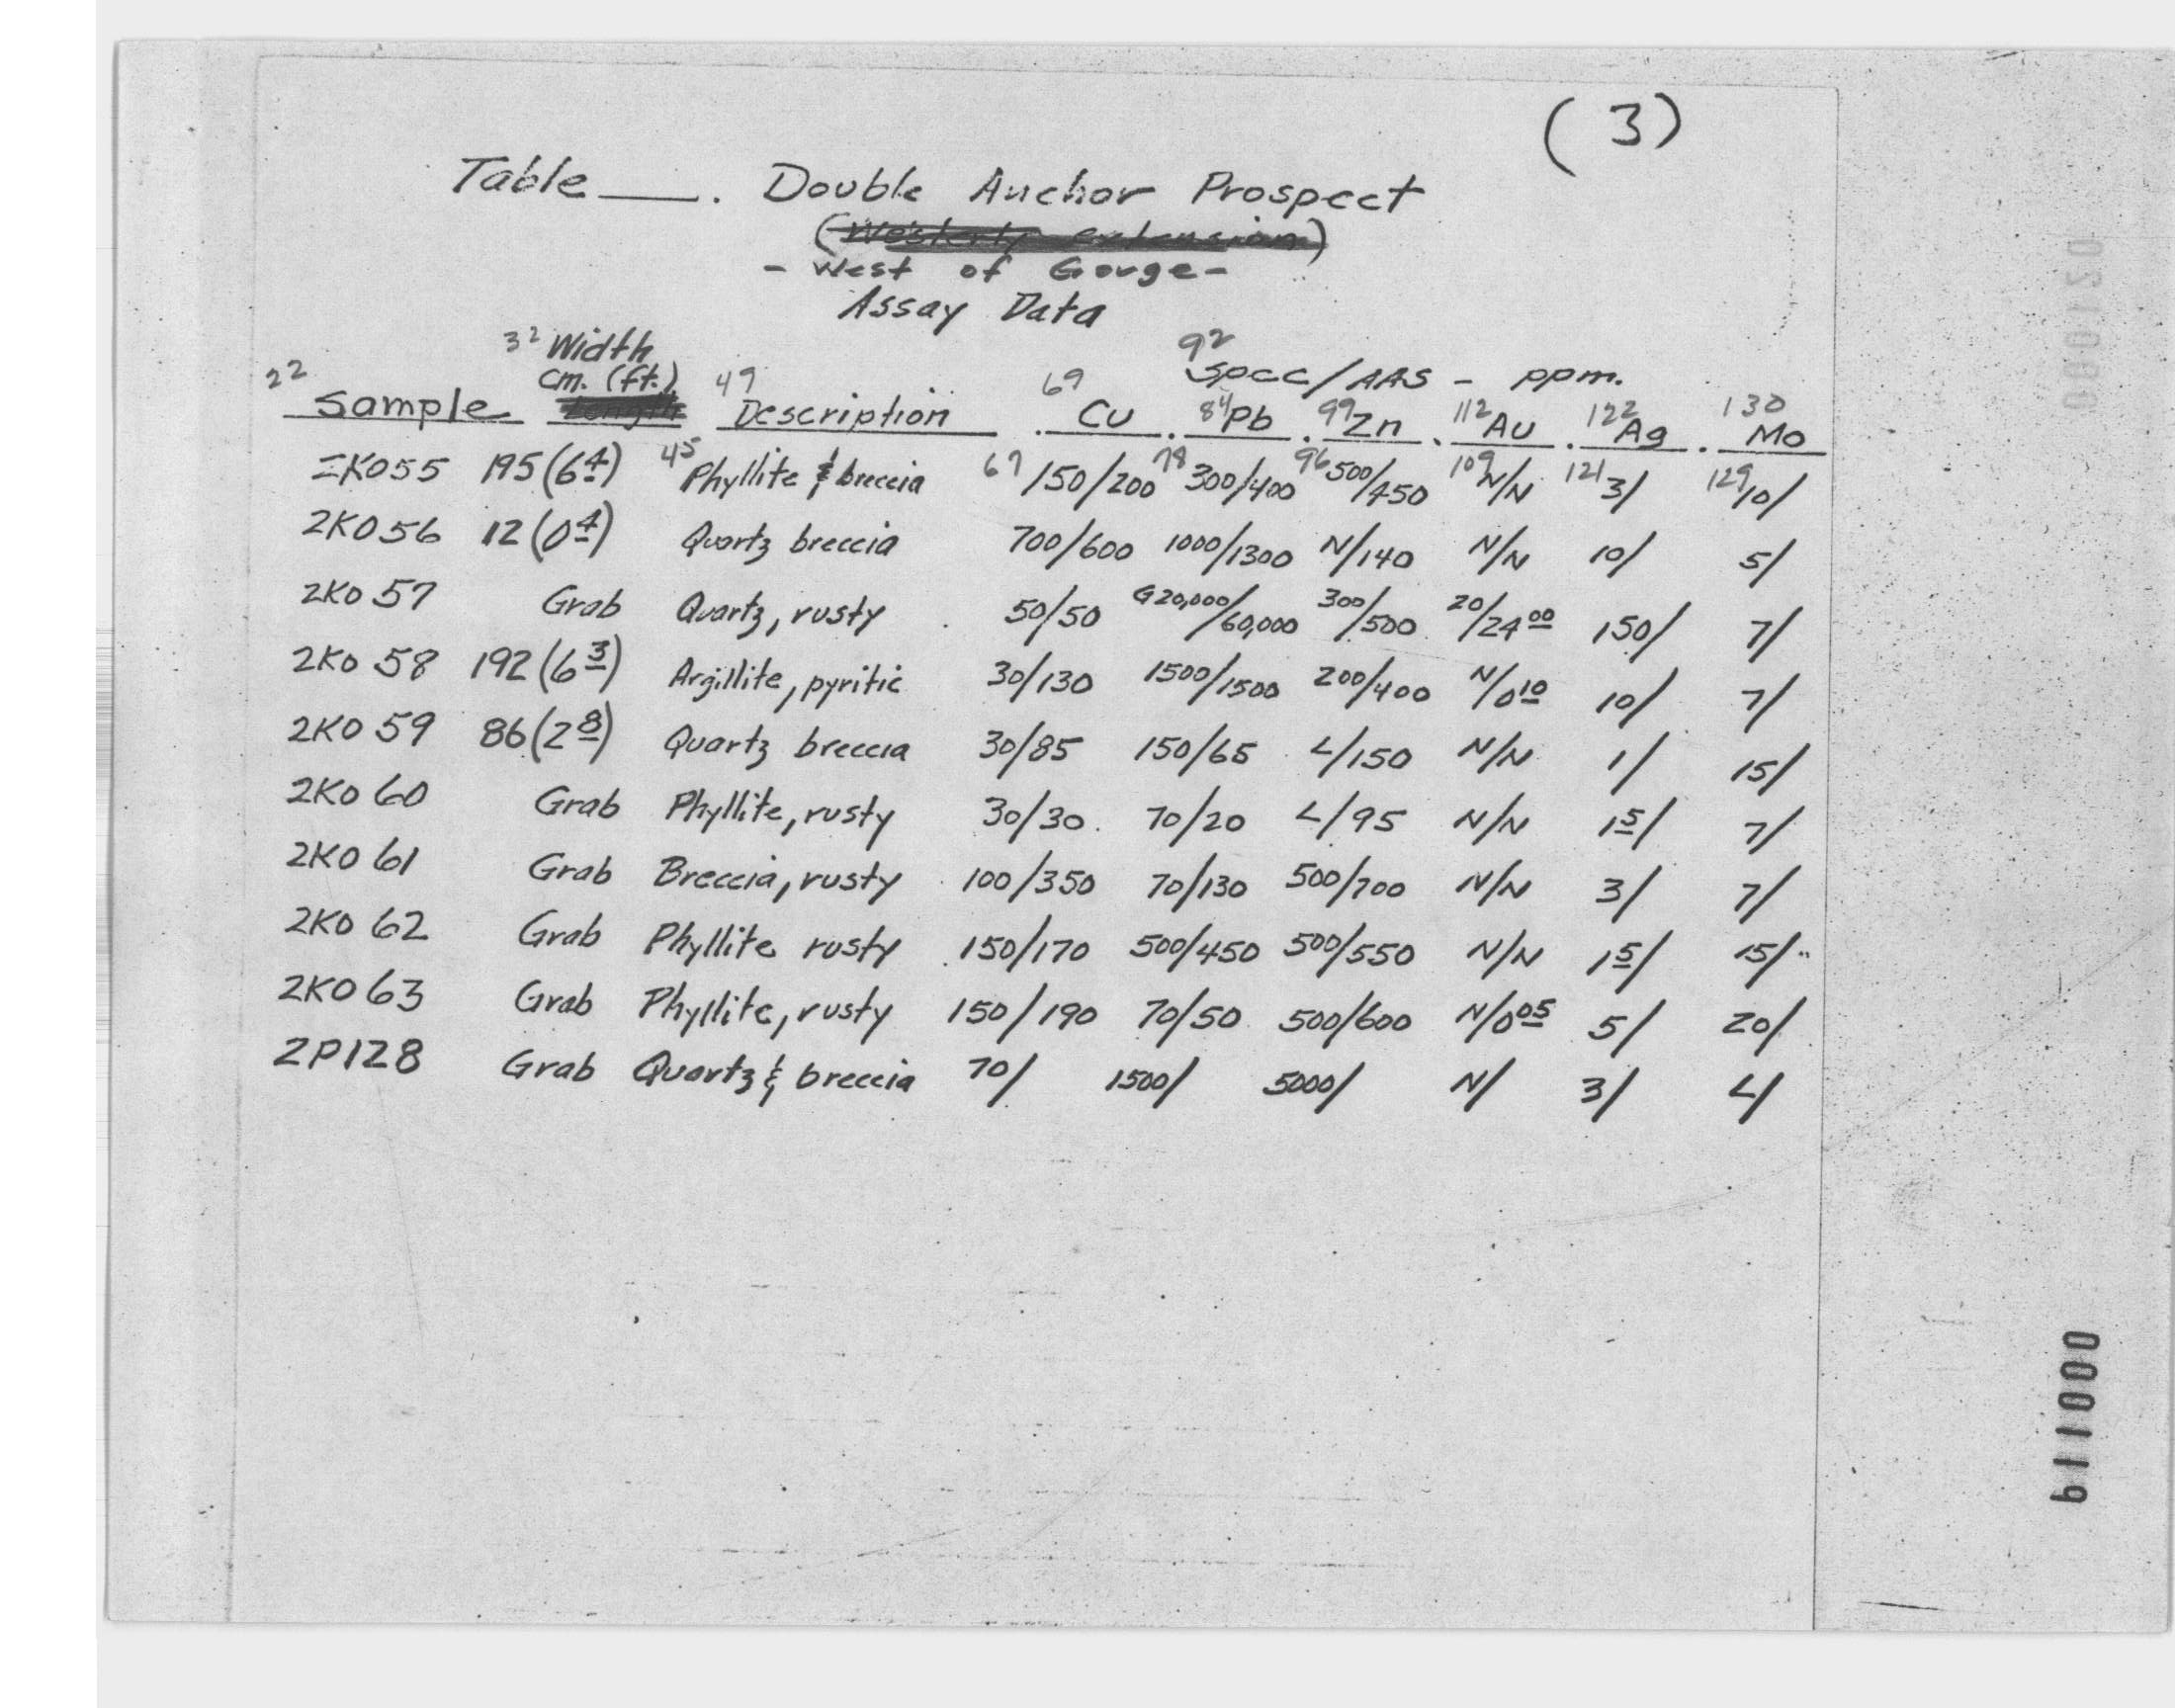 (3)
Table ___. Double Anchor Prospect
(Westerly extension)
- West of Gorge -
Assay Data
22 Sample 32 Width cm. (ft.) Length 49 Description 69 Cu 84 Pb 92 Spec/AAS - ppm. 99 Zn 112 Au 122 Ag 130 Mo
2K055 195(6 4) 45 Phyllite & breccia 67 150/200 78 300/400 96 500/450 109 N/N 121 3/ 129 10/
2K056 12(0 4) Quartz breccia 700/600 1000/1300 N/140 N/N 10/ 5/
2K057 Grab Quartz, rusty 50/50 G20,000/60,000 300/500 20/24 00 150/ 7/
2K058 192(6 3) Argillite, pyritic 30/130 1500/1500 200/400 N/0 10 10/ 7/
2K059 86(2 8) Quartz breccia 30/85 150/65 L/150 N/N 1/ 15/
2K060 Grab Phyllite, rusty 30/30 70/20 L/95 N/N 1 5/ 7/
2K061 Grab Breccia, rusty 100/350 70/130 500/700 N/N 3/ 7/
2K062 Grab Phyllite rusty 150/170 500/450 500/550 N/N 1 5/ 15/
2K063 Grab Phyllite, rusty 150/190 70/50 500/600 N/0 05 5/ 20/
2P128 Grab Quartz & breccia 70/ 1500/ 5000/ N/ 3/ L/
000119